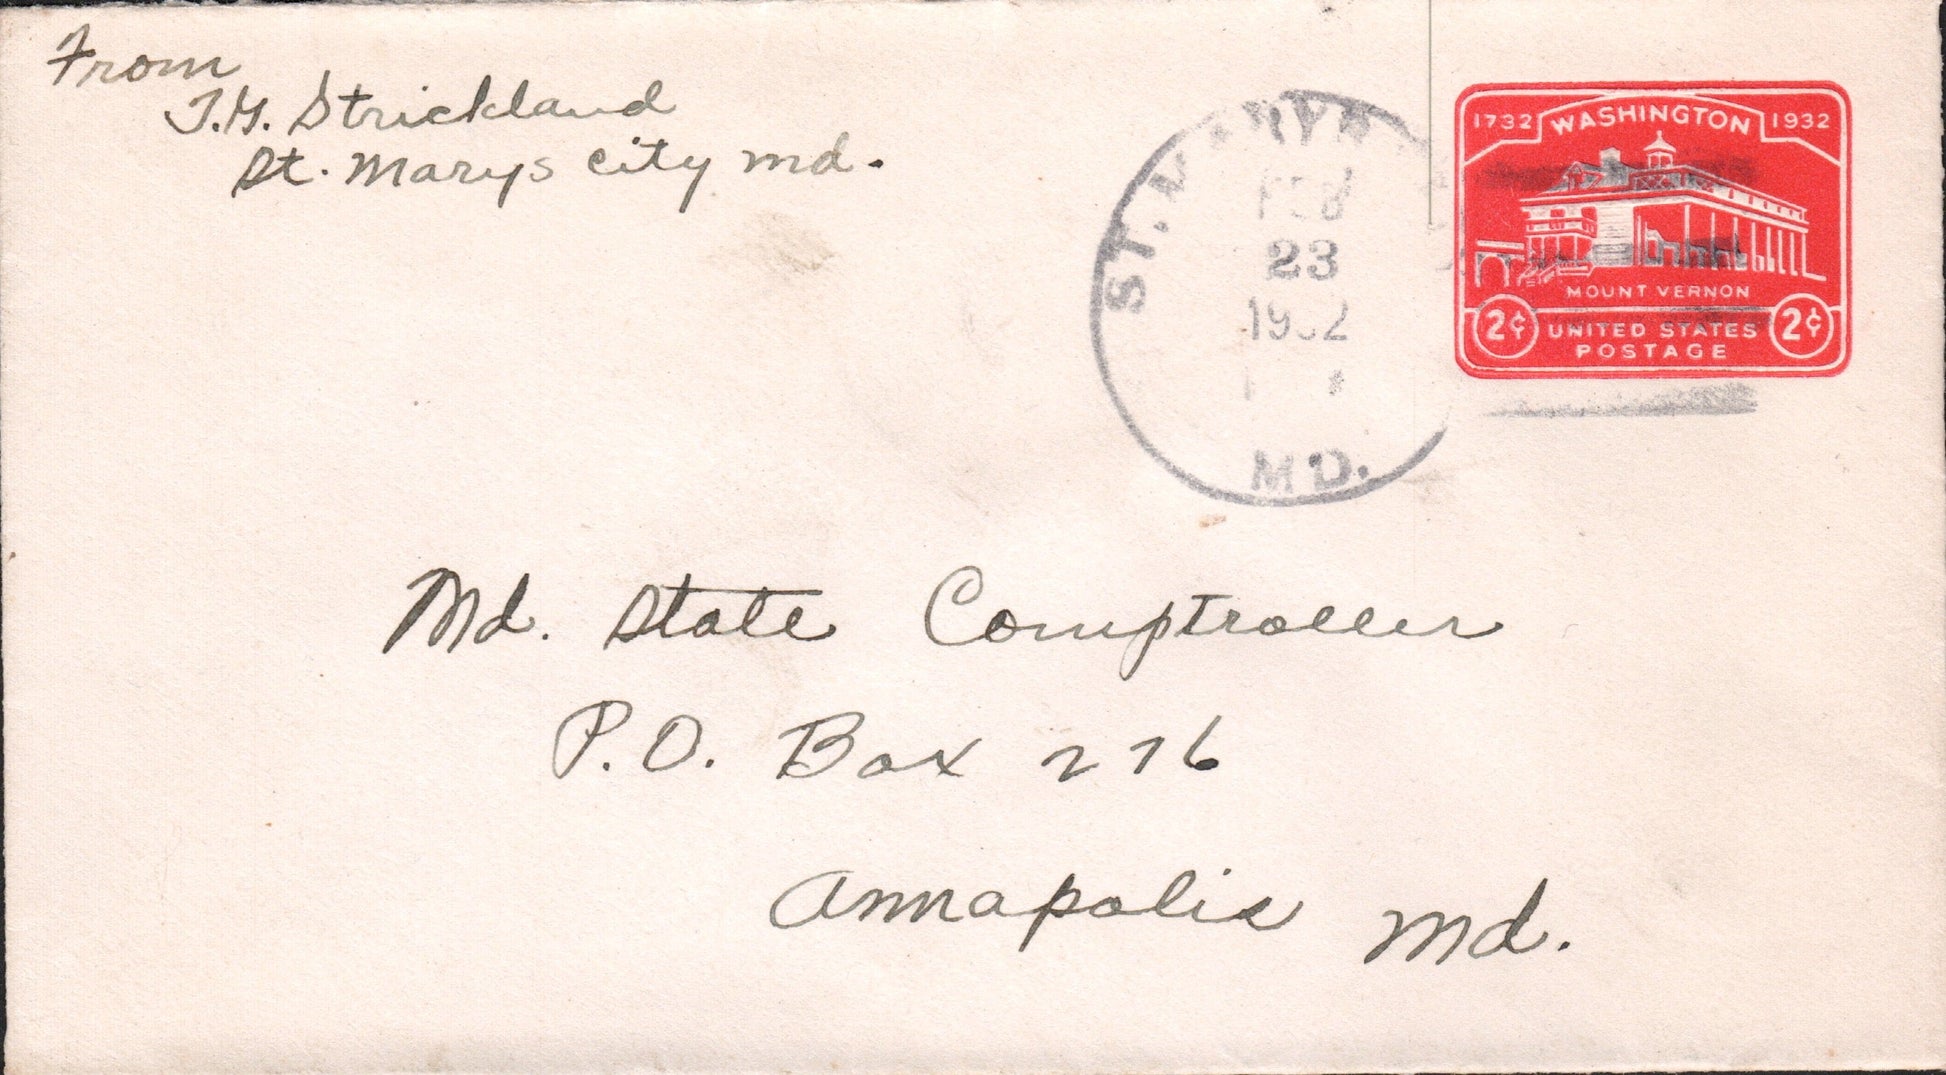 From
T.G. Strickland
St. Marys city md.
ST. MARYS
FEB
23
1932
MD.
1732 WASHINGTON 1932
MOUNT VERNON
2¢ UNITED STATES 2¢
POSTAGE
Md. State Comptroller
P.O. Box 276
Annapolis Md.